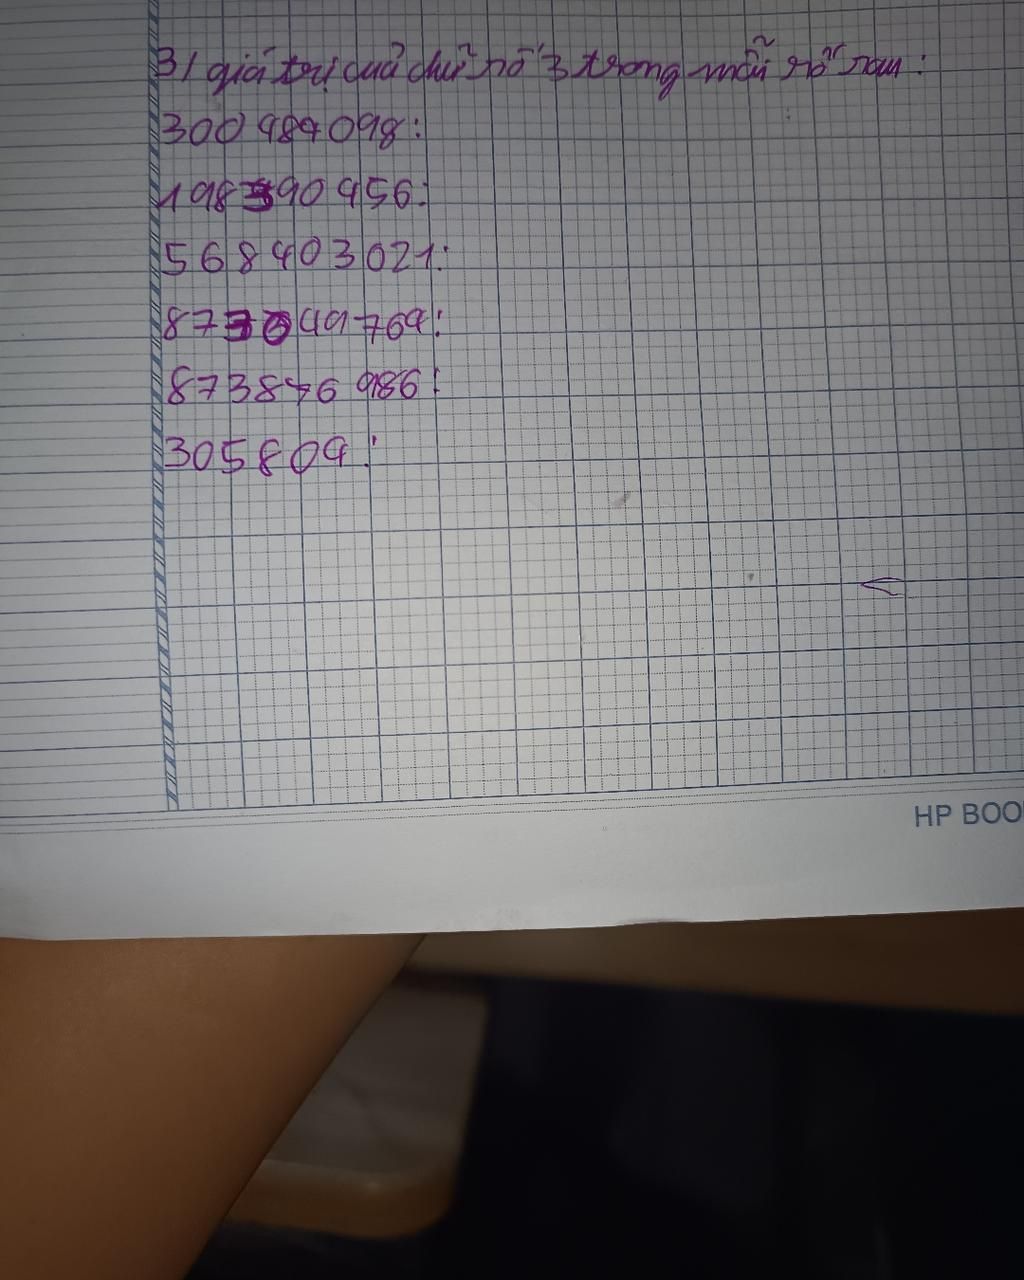 3/ giá trị của chữ số 3 trong mỗi số sau:
300 484 098:
198390 456:
568 403 021:
873049764:
873876 986:
305804:
HP BOO